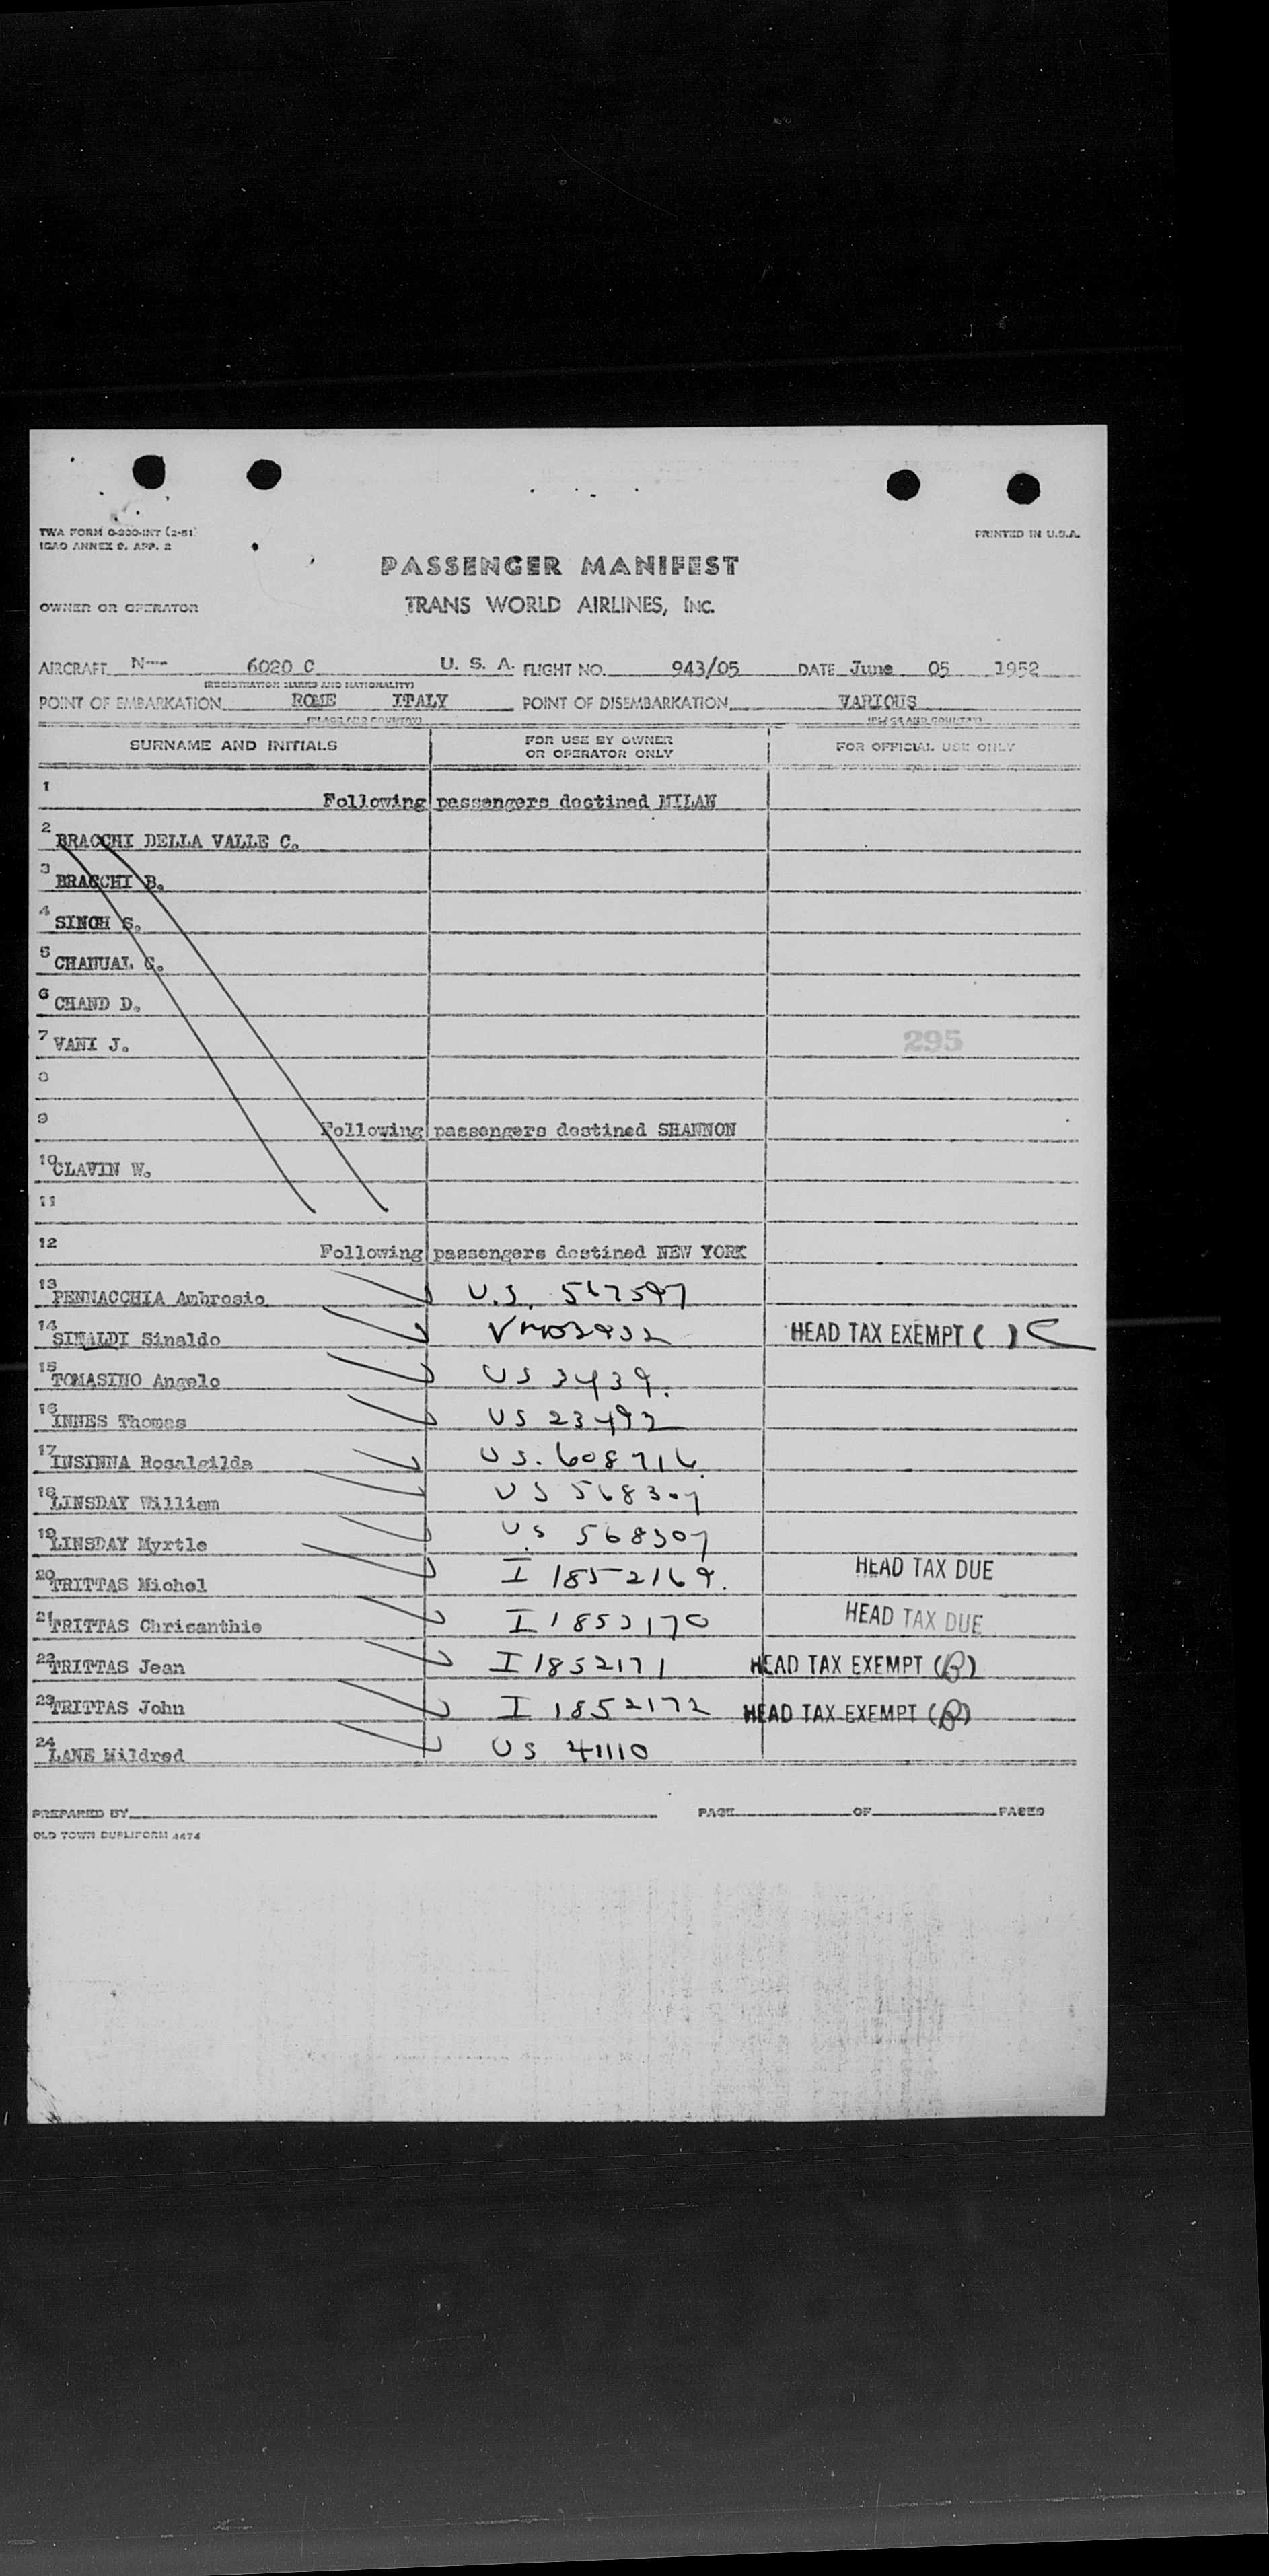 TWA FORM O-200-INT (2-51)
ICAO ANNEX 9, APP. 2
PRINTED IN U.S.A.
PASSENGER MANIFEST
OWNER OR OPERATOR TRANS WORLD AIRLINES, INC.
AIRCRAFT N--- 6020 C U. S. A. FLIGHT NO. 943/05 DATE June 05 1952
(REGISTRATION MARKS AND NATIONALITY)
POINT OF EMBARKATION ROME ITALY POINT OF DISEMBARKATION VARIOUS
(PLACE AND COUNTRY) (PLACE AND COUNTRY)
SURNAME AND INITIALS FOR USE BY OWNER OR OPERATOR ONLY FOR OFFICIAL USE ONLY
1 Following passengers destined MILAN
2 BRACCHI DELLA VALLE C.
3 BRACCHI B.
4 SINGH S.
5 CHANUAL C.
6 CHAND D.
7 VANI J. 295
8
9 Following passengers destined SHANNON
10 CLAVIN W.
11
12 Following passengers destined NEW YORK
13 PENNACCHIA Ambrosio U.S. 567597
14 SINALDI Sinaldo HEAD TAX EXEMPT ( ) C
15 TOMASINO Angelo US 3439.
16 INNES Thomas US 23493
17 INSINNA Rosalgilda US. 608716
18 LINSDAY William US 568307
19 LINSDAY Myrtle US 568307
20 TRITTAS Michel I 1852169. HEAD TAX DUE
21 TRITTAS Chrisanthie I 1852170 HEAD TAX DUE
22 TRITTAS Jean I 1852171 HEAD TAX EXEMPT (B)
23 TRITTAS John I 1852172 HEAD TAX EXEMPT (B)
24 LANE Mildred US 41110
PREPARED BY PAGE OF PAGES
OLD TOWN DUPLIFORM 4474